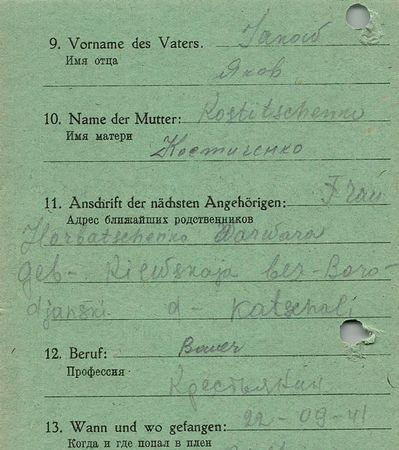 9. Vorname des Vaters. Jakob
Имя отца
Яков
10. Name der Mutter: Kostitschenko
Имя матери
Костиченко
11. Anschrift der nächsten Angehörigen: Frau
Адрес ближайших родственников
Horbatschenko Warwara
geb- Kiewskaja bez-Boro-
djanski d- Katschali
12. Beruf: Bauer
Профессия
Крестьянин
13. Wann und wo gefangen: 22-09-41
Когда и где попал в плен